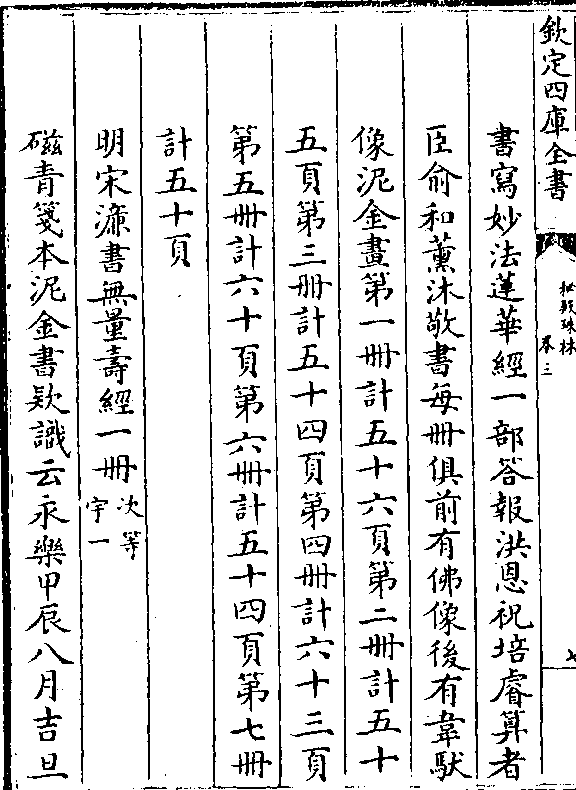 欽定四庫全書
秘殿珠林
卷三
七
書寫妙法蓮華經一部答報洪恩祝培睿算者
臣俞和薰沐敬書每冊俱前有佛像後有韋馱
像泥金畫第一冊計五十六頁第二冊計五十
五頁第三冊計五十四頁第四冊計六十三頁
第五冊計六十頁第六冊計五十四頁第七冊
計五十頁
明宋濂書無量壽經一冊次等
宇一
磁青箋本泥金書欵識云永樂甲辰八月吉旦